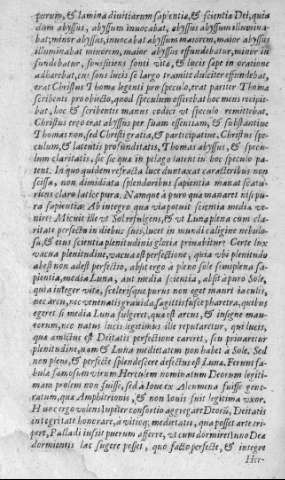 porum, & lamina diuitiarum sapientiæ, & scientiæ Dei, quia
dum abyssus, abyssum inuocabat, abyssus abyssum illumina-
bat; minor abyssus, inuocabat abyssum maiorem, maior abyssus
illuminabat minorem, maior abyssus effundebatur, minor in
fundebatur, sons vitæ, & lucis sapè in oratione
adhærebat, cui sons lucis se largo tramite dulciter effundebat,
erat Christus Thomæ legenti pro speculo, erat pariter Thomæ
scribenti pro obiecto, quod speculum offerebat hoc mens recipie-
bat, hoc & scribentis manus codici vt speculo remittebat.
Christus ergo erat abyssus per suam essentiam, & substantiam
Thomas non, sed Christi gratia, & participatione. Christus spe-
culum, & latentis profunditatis, Thomas abyssus, & specu-
lum claritatis, sic se qua in pelago latent in hoc speculo pa-
tent. In quo quidem refracta luce duntaxat caractéribus non
scissa, non dimidiata splendoribus sapientia manat scatu-
riens clara satisque pura. Namque à puro quî manaret nisi pu-
ra sapientia? Ab integro qua vitæ potuit scientia media ve-
nire? Micuit ille vt Sol refulgens, & vt Luna plena cum cla-
ritate perfectu in diebus suis, lucet in mundi caligine nebulo-
su, & eius scientia plenitudinis gloria priuabitur? Certe lux
vacua plenitudine, vacua est perfectione, quia vbi plenitudo
abest non adest perfectio, absit ergo à pleno sole semiplena sa-
pientia, media Luna, aut media scientia, absit à puro Sole,
quia integer vitæ, scelerisque purus non eget mauri iaculis,
nec arcu, nec venenatis grauida sagittis fusce pharetra, quibus
egeret si media Luna fulgeret, qua est arcus, & insigne mau-
rorum, nec natus lucis legitimus ille reputaretur, qui lucis,
qua amictus est Deitatis perfectione careret, seu priuaretur
plenitudine, nam & Luna medietatem non habet à Sole. Sed
non plene, & perfecte splendescere defectus est Lunæ. Ferunt fa-
bula famosum virum Herculem nominatum Deorum legiti-
mam prolem non fuisse, sed à Ioue ex Alcumena fuisse gene-
ratum, quæ Amphitrionis, & non Iouis fuit legitima vxor.
Hunc ergo volens Iupiter consortio aggregari Deorũ, Deitatis
integritate honorare, à vitioq; medietatis, qua posset arte eri-
pere, Palladi iussit puerum afferre, vt cum dormiret Iuno Dea
dormientis lac sugere posset, quo facto perfectè, & integre
Her-